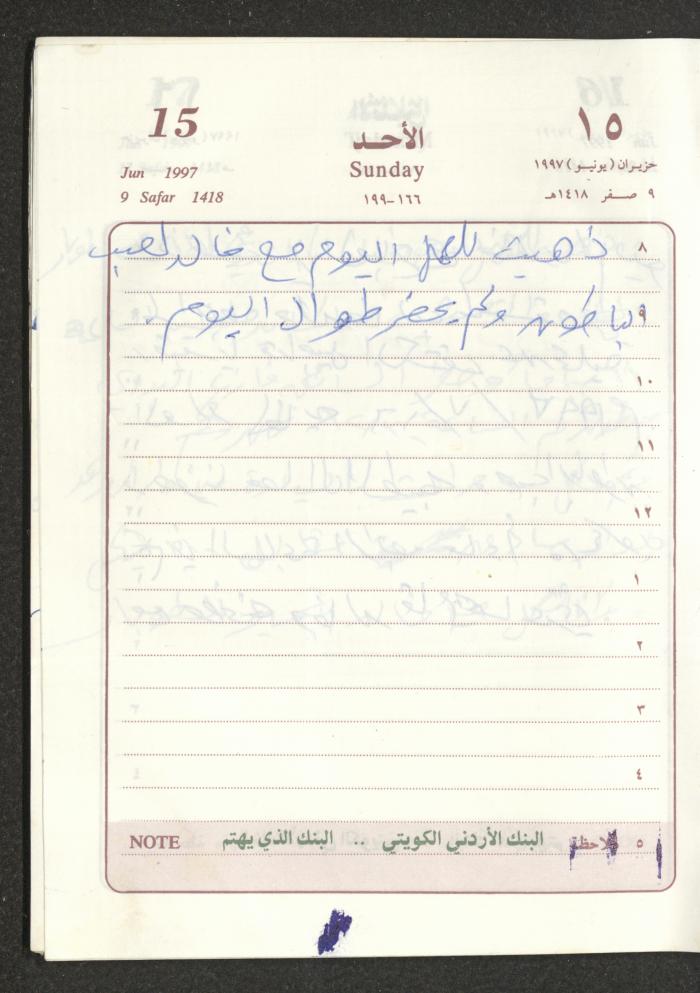 15
الأحد
١٥
Jun 1997
Sunday
حزيران (يونيو) ١٩٩٧
9 Safar 1418
١٦٦-١٩٩
٩ صفر ١٤١٨هـ
٨ ذهبت للعمل اليوم مع خالد
٩ ولم يحضر طوال اليوم.
١٠
١١
١٢
١
٢
٣
٤
٥ ملاحظة البنك الأردني الكويتي .. البنك الذي يهتم NOTE